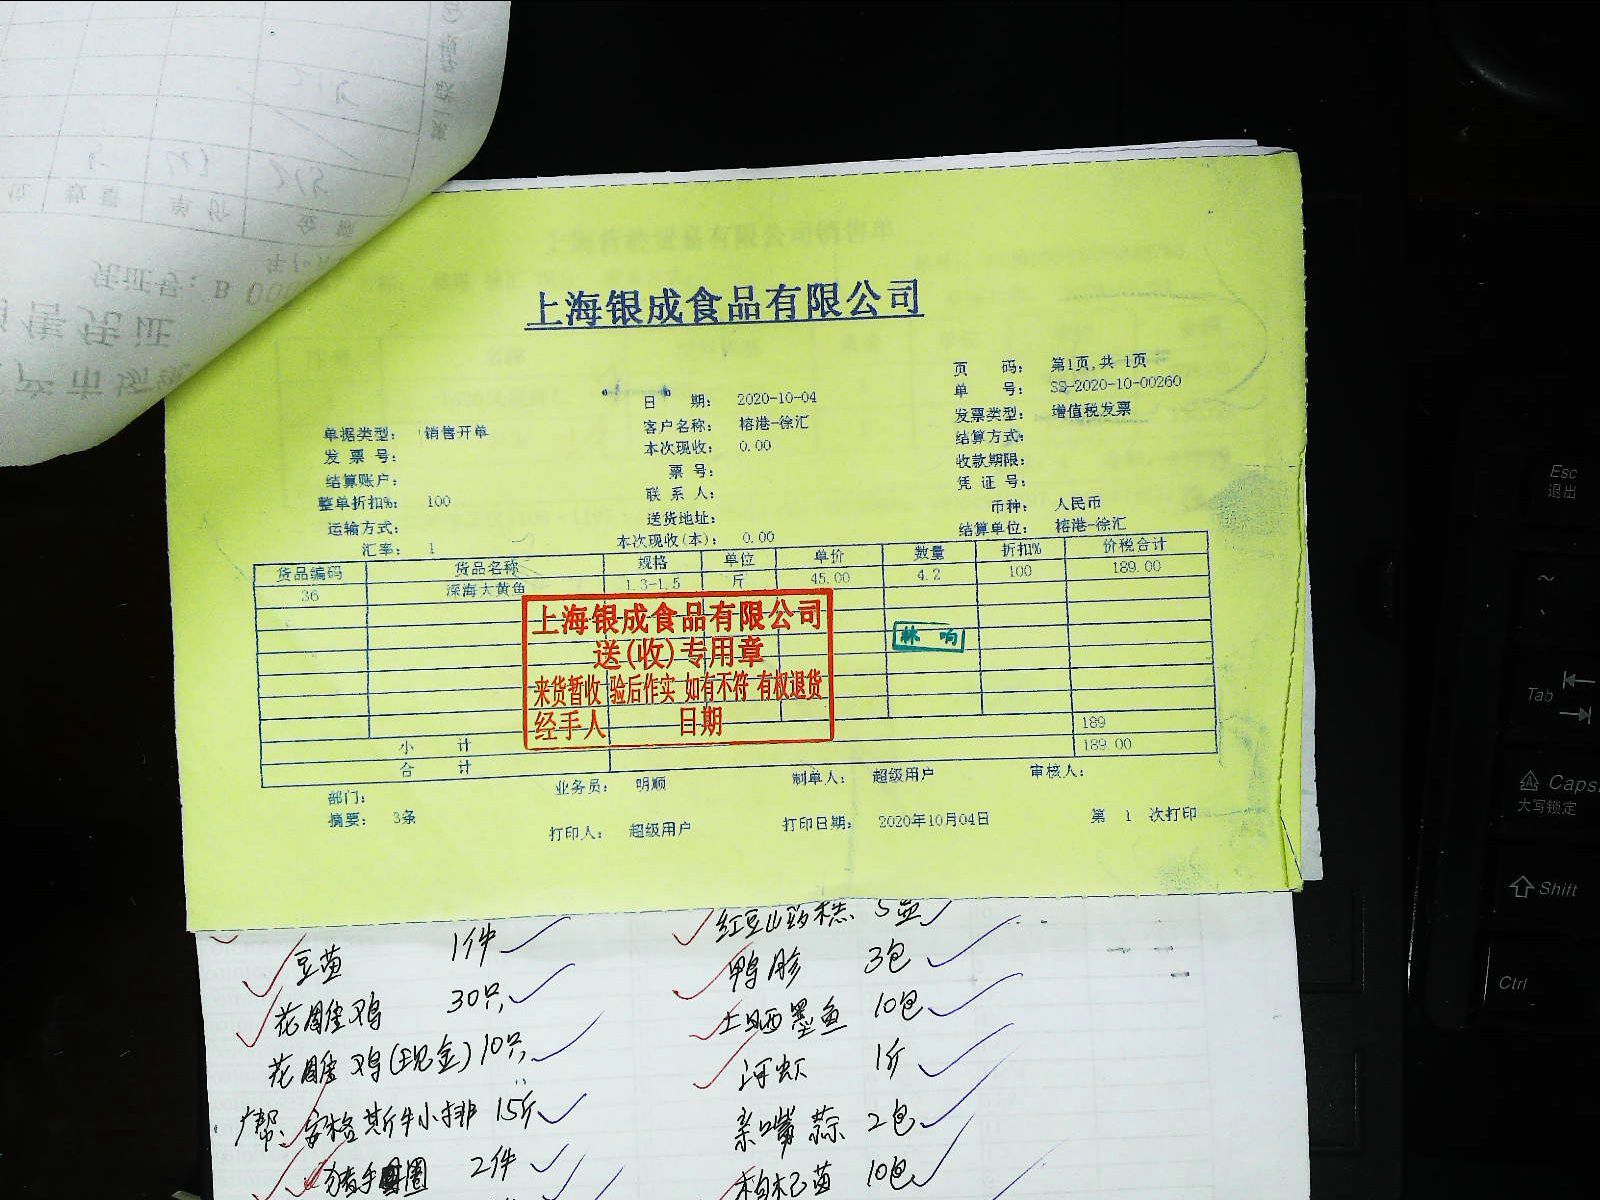 凭证号: B 000
售凭证
上海银成食品有限公司
页 码: 第1页,共 1页
单 号: SS-2020-10-00260
日 期: 2020-10-04
发票类型: 增值税发票
单据类型: 销售开单
客户名称: 榕港-徐汇
结算方式:
发 票 号:
本次现收: 0.00
收款期限:
结算账户:
票 号:
凭 证 号:
整单折扣%: 100
联 系 人:
币种: 人民币
运输方式:
送货地址:
结算单位: 榕港-徐汇
汇率: 1
本次现收(本): 0.00
货品编码 货品名称 规格 单位 单价 数量 折扣% 价税合计
36 深海大黄鱼 1.3-1.5 斤 45.00 4.2 100 189.00
上海银成食品有限公司
送(收)专用章
来货暂收 验后作实 如有不符 有权退货
经手人 日期
林 响
小 计 189
合 计 189.00
部门: 业务员: 明顺 制单人: 超级用户 审核人:
摘要: 3条 打印人: 超级用户 打印日期: 2020年10月04日 第 1 次打印
豆苗 1件
花雕鸡 30只
花雕鸡(现金) 10只
广帮、安格斯牛小排 15斤
猪手圈 2件
红豆山药糕 5盒
鸭胗 3包
土晒墨鱼 10包
河虾 1斤
亲嘴蒜 2包
枸杞苗 10包
Esc
退出
~
Tab
Caps
大写锁定
Shift
Ctrl